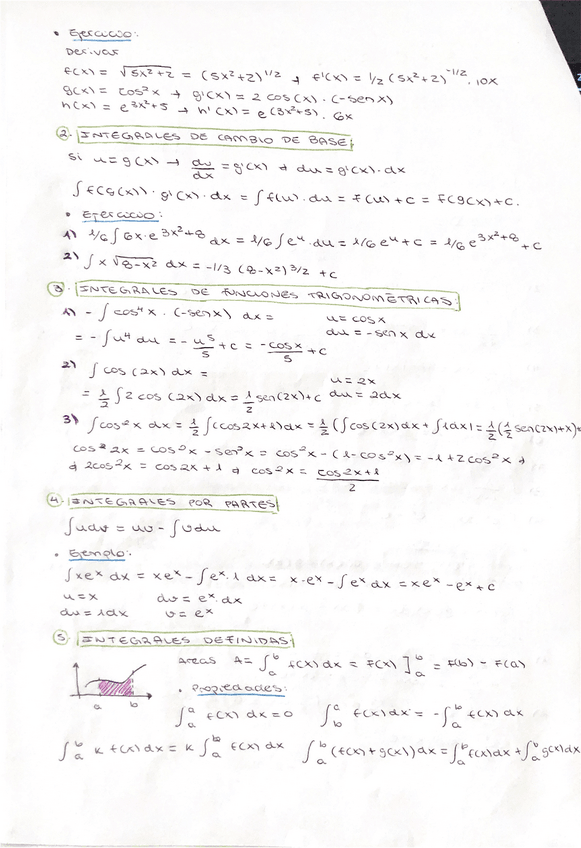 • Ejercicio:
Derivar
f(x) = √5x²+2 = (5x²+2)^1/2 → f'(x) = 1/2 (5x²+2)^-1/2 . 10x
g(x) = cos²x → g'(x) = 2 cos(x) . (-sen x)
h(x) = e^3x²+5 → h'(x) = e(3x²+5) . 6x
2. INTEGRALES DE CAMBIO DE BASE:
si u = g(x) → du/dx = g'(x) → du = g'(x) . dx
∫ f(g(x)) . g'(x) . dx = ∫ f(u) . du = F(u) + c = F(g(x)) + c.
• Ejercicio:
1) 1/6 ∫ 6x . e^3x²+8 dx = 1/6 ∫ e^u . du = 1/6 e^u + c = 1/6 e^3x²+8 + c
2) ∫ x √8-x² dx = -1/3 (8-x²)^3/2 + c
3. INTEGRALES DE FUNCIONES TRIGONOMÉTRICAS:
1) - ∫ cos⁴x . (-sen x) dx = u = cos x
= - ∫ u⁴ du = - u⁵/5 + c = -cos x/5 + c du = -sen x dx
2) ∫ cos (2x) dx = u = 2x
= 1/2 ∫ 2 cos (2x) dx = 1/2 sen(2x) + c du = 2dx
3) ∫ cos²x dx = 1/2 ∫ (cos2x+1) dx = 1/2 (∫ cos(2x) dx + ∫ 1dx) = 1/2 (1/2 sen(2x)+x)+
cos² 2x = cos²x - sen²x = cos²x - (1-cos²x) = -1+2cos²x →
→ 2cos²x = cos2x + 1 → cos²x = cos2x+1/2
4. INTEGRALES POR PARTES
∫ u dv = uv - ∫ v du
• Ejemplo:
∫ xe^x dx = xe^x - ∫ e^x . 1 dx = x . e^x - ∫ e^x dx = xe^x - e^x + c
u = x dv = e^x . dx
du = 1dx v = e^x
5. INTEGRALES DEFINIDAS:
areas A = ∫_a^b f(x) dx = F(x) ]_a^b = F(b) - F(a)
a b
• Propiedades:
∫_a^a f(x) dx = 0 ∫_b^a f(x) dx = - ∫_a^b f(x) dx
∫_a^b k f(x) dx = k ∫_a^b f(x) dx ∫_a^b (f(x) + g(x)) dx = ∫_a^b f(x) dx + ∫_a^b g(x) dx